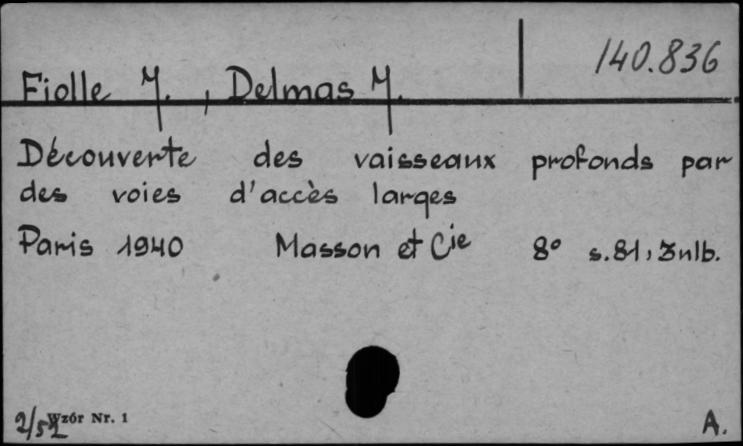 140.836
Fiolle J., Delmas J.
Découverte des vaisseaux profonds par
des voies d'accès larges
Paris 1940 Masson et Cie 8° s.81, 3nlb.
2/52 Wzór Nr. 1 A.